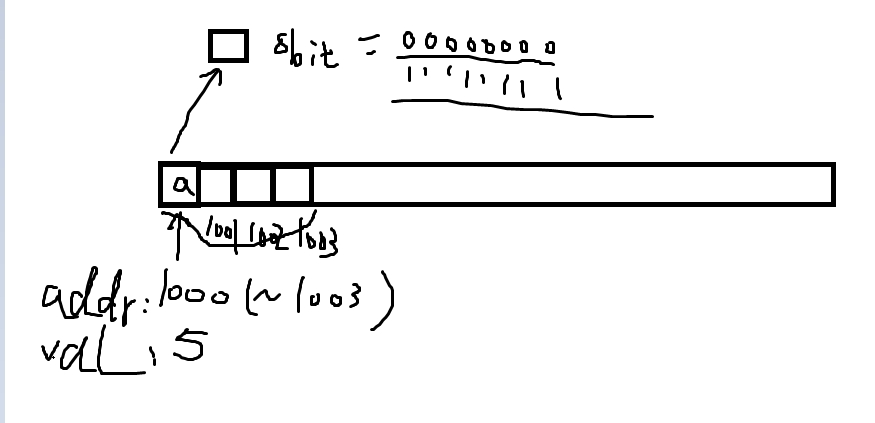 8bit = 00000000
11111111
a
1001 1002 1003
addr: 1000 (~1003)
val: 5